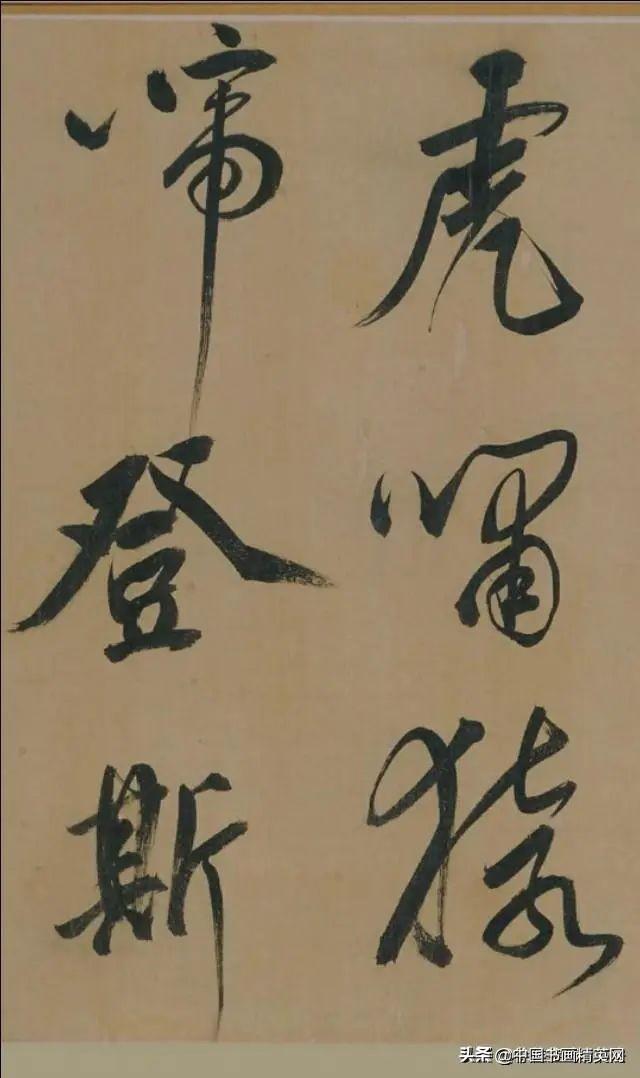 虎啸猿
啼登斯
头条 @中国书画精英网